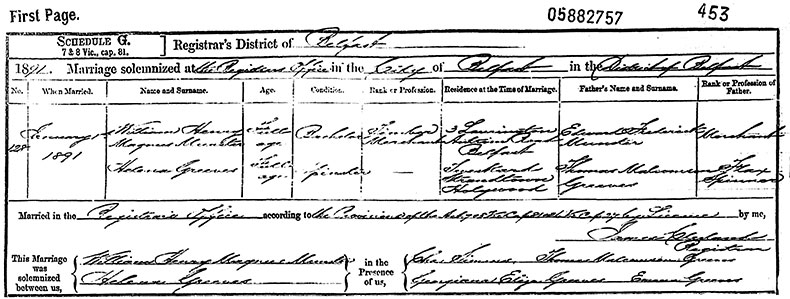 First Page.
05882757 453
SCHEDULE G.
7 & 8 Vic., cap. 81.
Registrar's District of Belfast
1891. Marriage solemnized at the Registrars Office in the City of Belfast in the District of Belfast
No. When Married. Name and Surname. Age. Condition. Rank or Profession. Residence at the Time of Marriage. Father's Name and Surname. Rank or Profession of Father.
128 January 1 William Henry Full Bachelor 3 Edward Frederick Merchant
1891 Magnus Munster age Merchant Road Munster
Belfast
Helena Greaves Full Spinster — Thomas Malcomson Flax
age Strandtown Greaves Spinner
Holywood
Married in the Registrars Office according to the Provisions of the Act 7 & 8 Vic Cap 81 by License by me,
James
Registrar
This Marriage was solemnized between us, William Henry Magnus Munster in the Presence of us, Thomas Malcomson Greaves
Helena Greaves Georgiana Eliza Greaves Emma Greaves